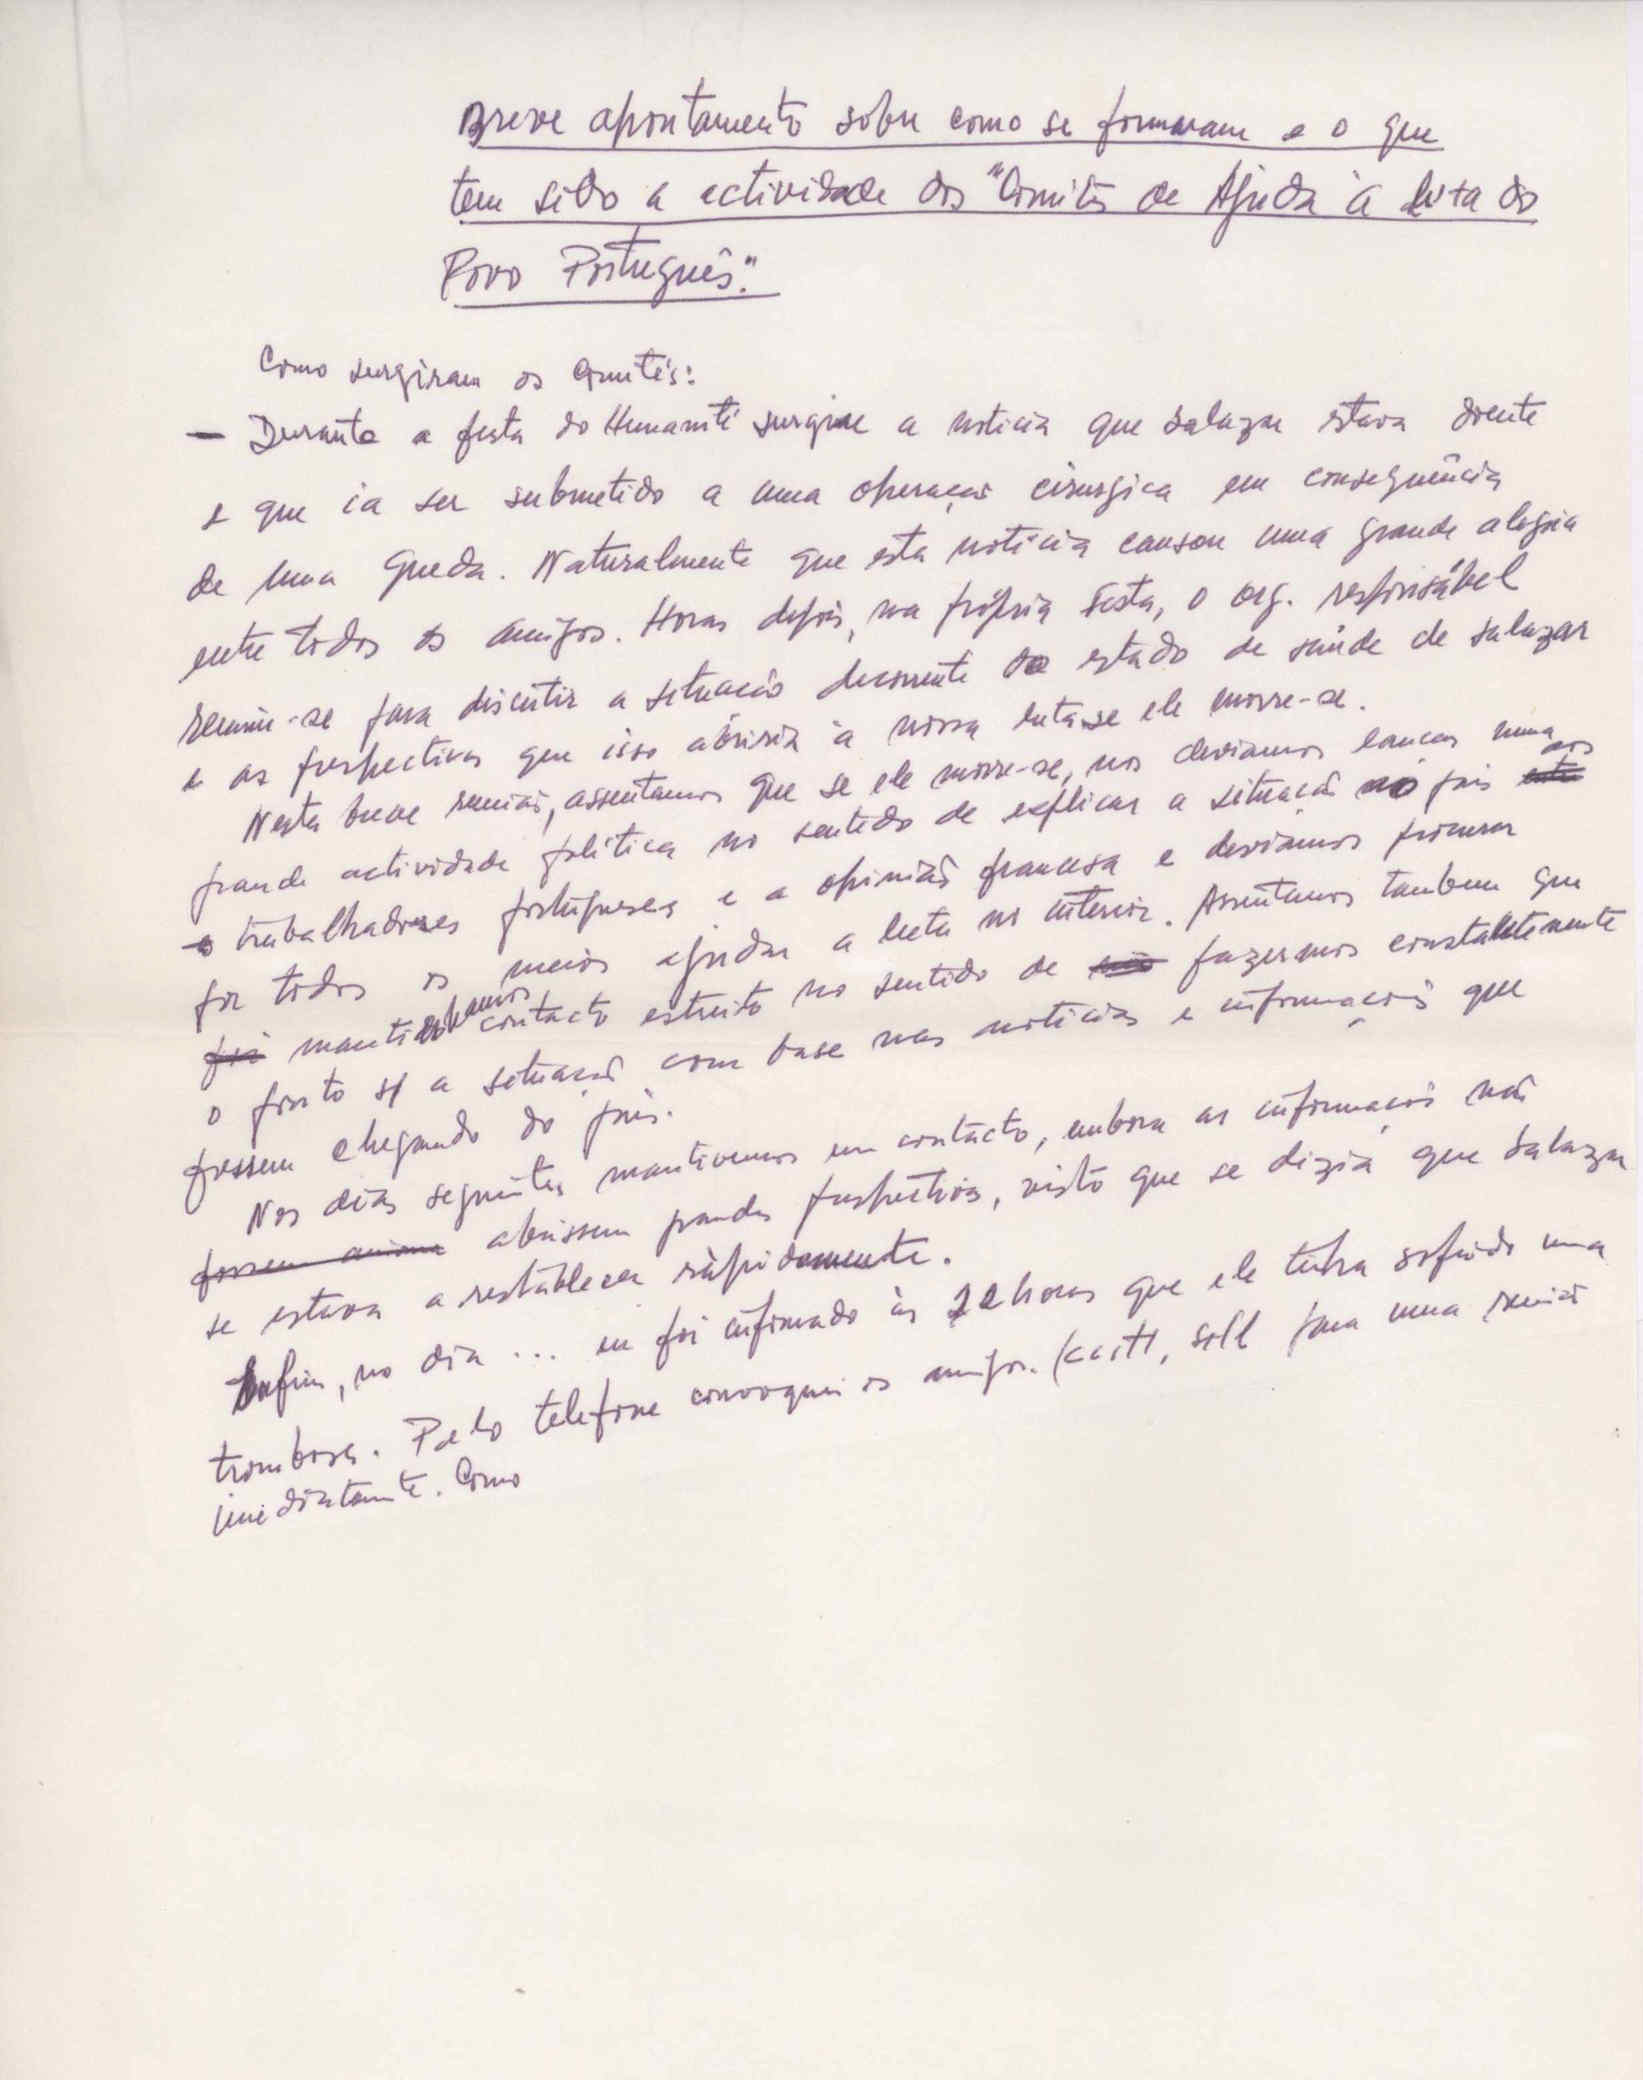 Breve apontamento sôbre como se formaram e o que
tem sido a actividade dos "Comités de Ajuda à luta do
Povo Português".
Como surgiram os Comités:
— Durante a festa do Humanité surgiu a noticia que Salazar estava doente
e que ia ser submetido a uma operação cirurgica em consequência
de uma queda. Naturalmente que esta notícia causou uma grande alegria
entre todos os amigos. Horas depois, na própria festa, o org. responsável
reuniu-se para discutir a situação decorrente do estado de saúde de Salazar
e as perspectivas que isso abriria à nossa luta se ele morre-se.
Nesta breve reunião, assentamos que se ele morre-se, nos deviamos lançar numa
grande actividade política no sentido de explicar a situação no país aos
trabalhadores portugueses e a opinião francesa e deviamos procurar
por todos os meios ajudar a luta no interior. Assentamos tambem que
contacto estreito no sentido de fazermos constantemente
o ponto s/ a situação com base nas notícias e informações que
fossem chegando do país.
Nos dias seguintes mantivemos em contacto, embora as informações não
fossem abrissem grandes perspectivas, visto que se dizia que Salazar
se estava a restabelecer ràpidamente.
Enfim, no dia ... eu foi informado às 22 horas que ele tinha sofrido uma
trombose. Pelo telefone convoquei os amigos. para uma reunião
imediatamente. Como